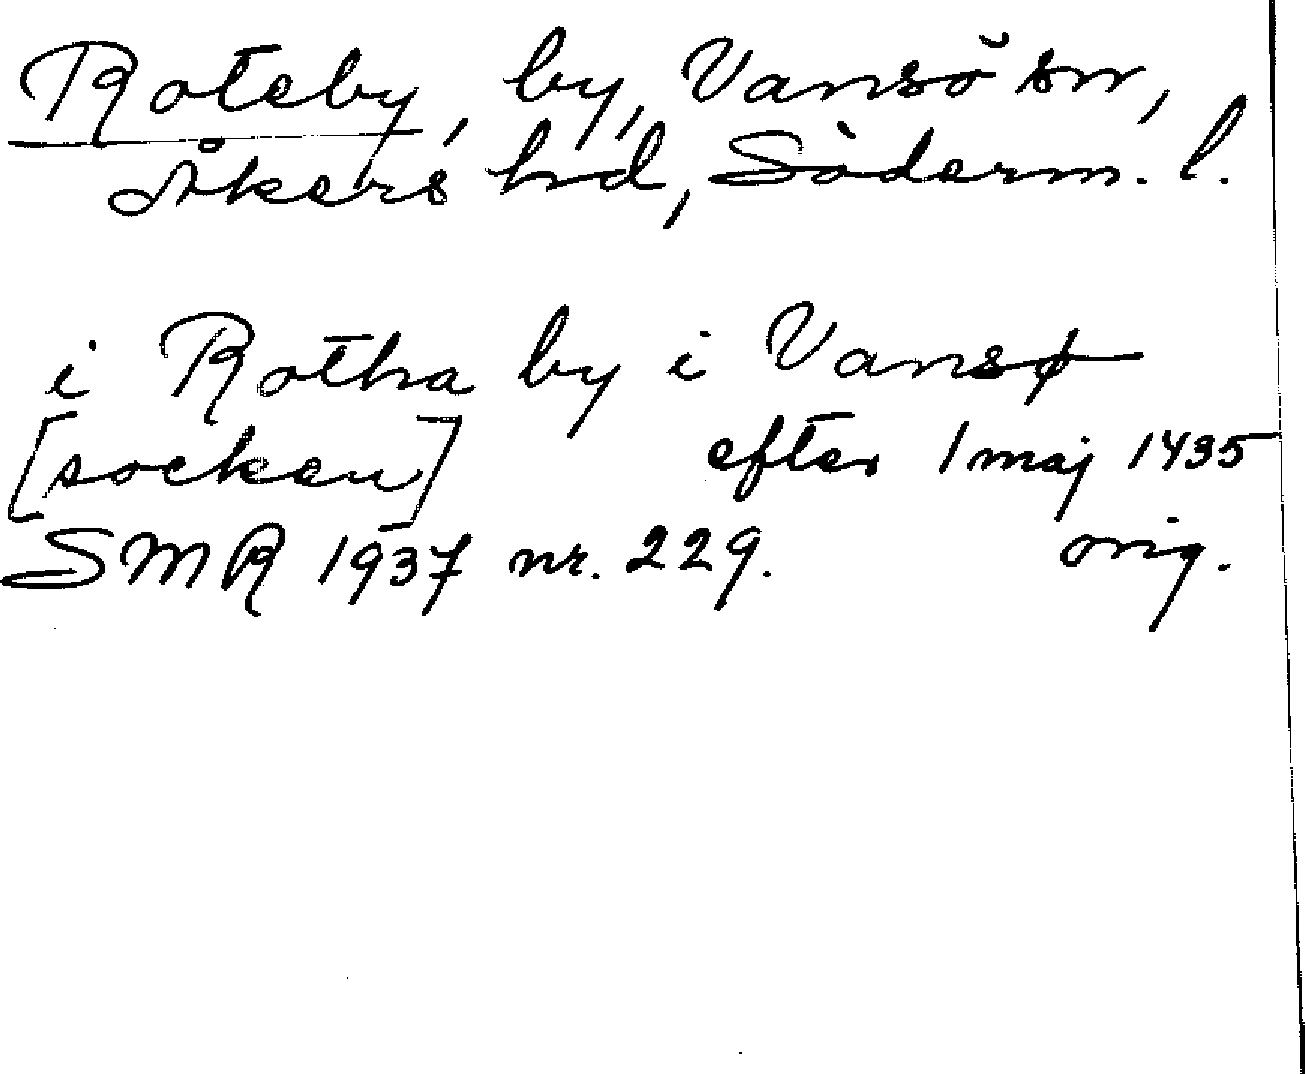 Roteby, by, Vansö sn,
Åkers hd, Söderm. l.
i Rotha by i Vansø
[socken] efter 1 maj 1435
SMR 1937 nr. 229. orig.